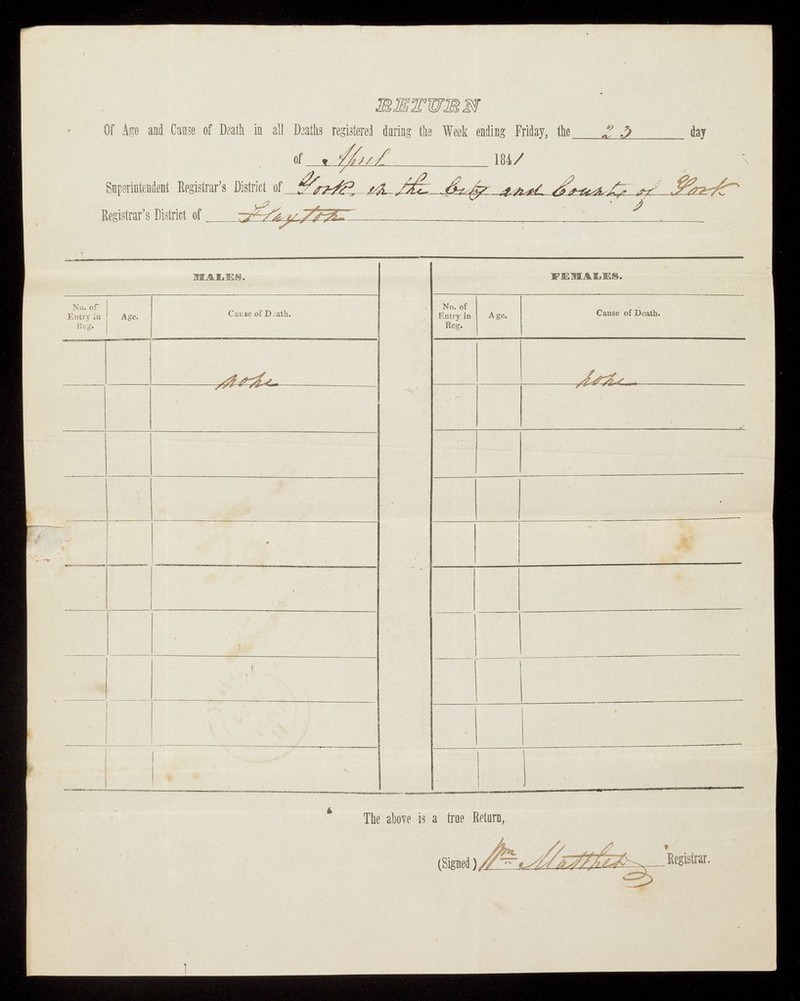 RETURN
Of Age and Cause of Death in all Deaths registered during the Week ending Friday, the 23 day
of April 1841
Superintendent Registrar's District of York in the City and County of York
Registrar's District of Flaxton
MALES. FEMALES.
No. of Entry in Reg. Age. Cause of Death. No. of Entry in Reg. Age. Cause of Death.
none none
The above is a true Return,
(Signed) Wm Matthews Registrar.